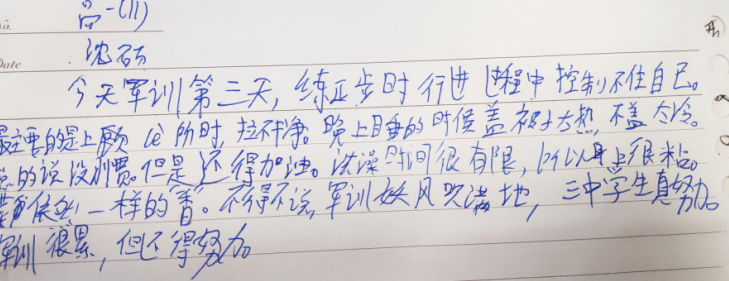 高一(11)
Date 沈硕
今天军训第三天,练正步时行进过程中控制不住自己。
最主要的是上厕所时,拉不净。晚上睡的时候盖被子太热 不盖太冷。
的说没习惯。但是还得加油。洗澡时间很有限,所以身上很粘。
一样的香。不得不说,军训妖风吹满地,三中学生真努力。
军训很累,但还得努力。